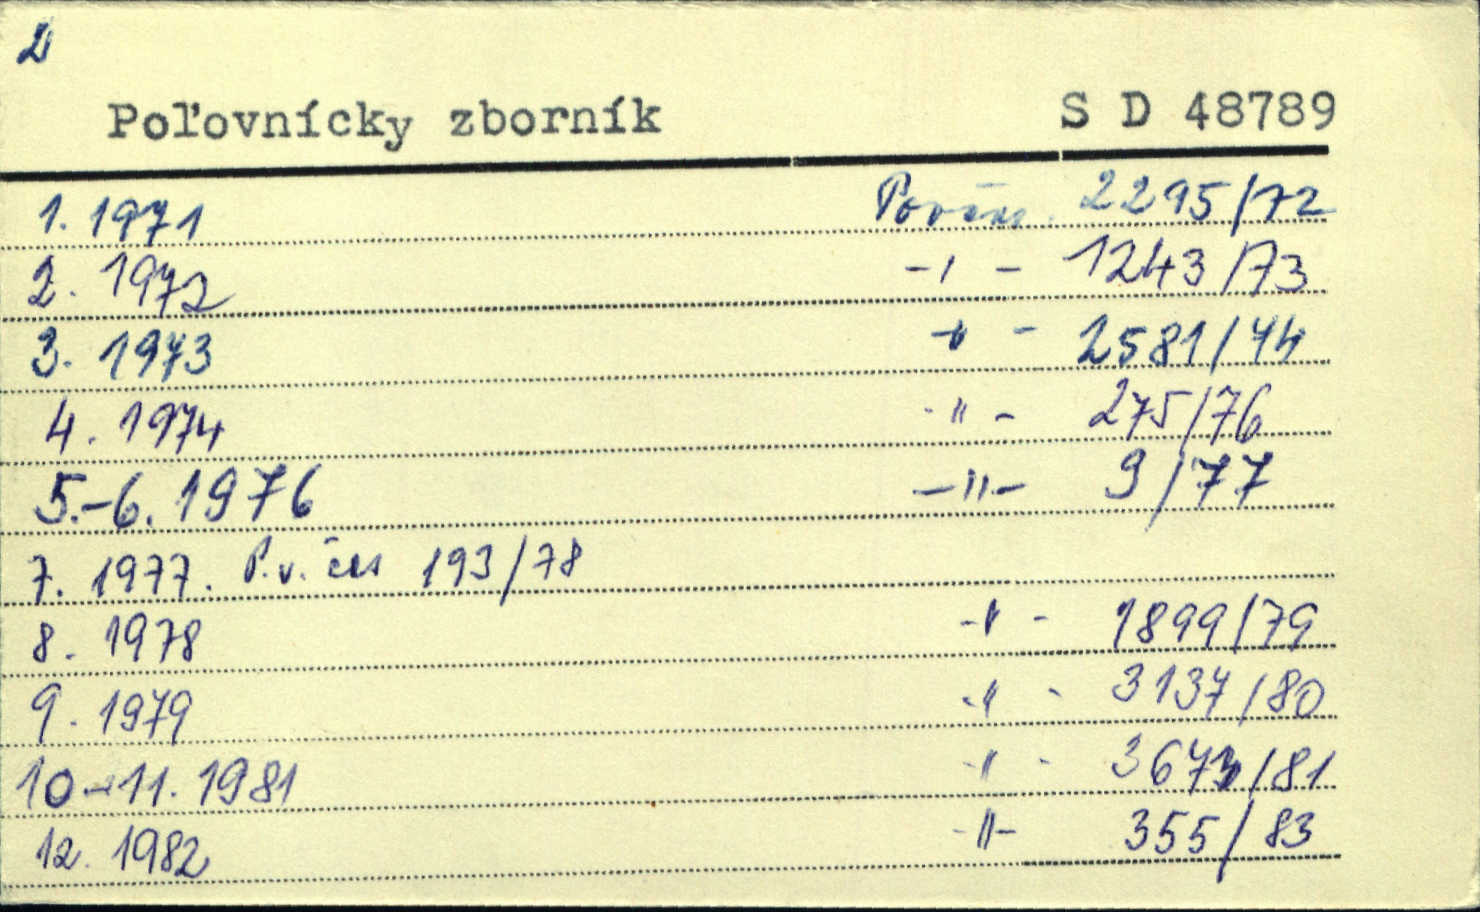 Poľovnícky zborník S D 48789
1. 1971 2295/72
2. 1972 -"- 1243/73
3. 1973 -"- 2581/74
4. 1974 -"- 275/76
5.-6. 1976 -"- 9/77
7. 1977. P.v. čas 193/78
8. 1978 -"- 1899/79
9. 1979 -"- 3137/80
10-11. 1981 -"- 3673/81
12. 1982 -"- 355/83